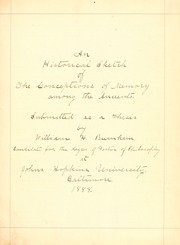 An
Historical Sketch
of
The Conceptions of Memory
among the Ancients
Submitted as a Thesis
by
William H. Burnham
Candidate for the degree of Doctor of Philosophy
at
Johns Hopkins University
Baltimore
1888.